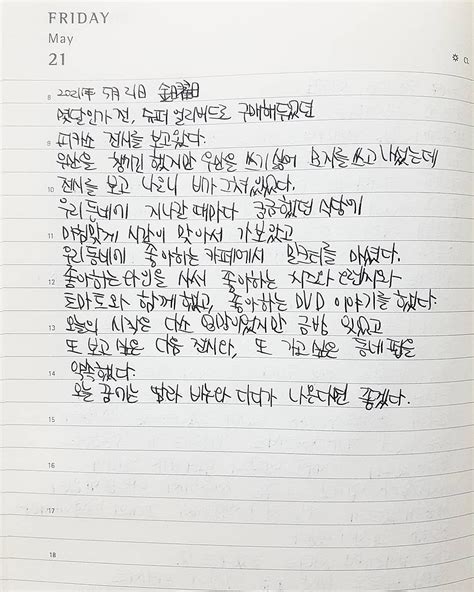 FRIDAY
May
21
CL
8 2021年 5月 21日 金曜日
몇달인가 전, 슈퍼얼리버드로 구매해두었던
9 피카소 전시를 보고왔다.
우산을 챙기긴 했지만 우산을 쓰기 싫어 모자를 쓰고 나섰는데
10 전시를 보고 나오니 비가 그쳐있었다.
우리동네에 지나갈 때마다 궁금했던 식당에
11 마침맞게 시간이 맞아서 가보았고
우리동네에 좋아하는 카페에서 밀크티를 마셨다.
12 좋아하는 와인을 사서 좋아하는 치즈와 오렌지와
토마토와 함께 했고, 좋아하는 DVD 이야기를 했다.
13 오늘의 시작은 다소 엉망이었지만 금방 잊었고
또 보고 싶은 다음 전시와, 또 가고 싶은 동네 펍을
14 약속했다.
오늘 꿈에는 달라 바슈와 디디가 나온다면 좋겠다.
15
16
17
18